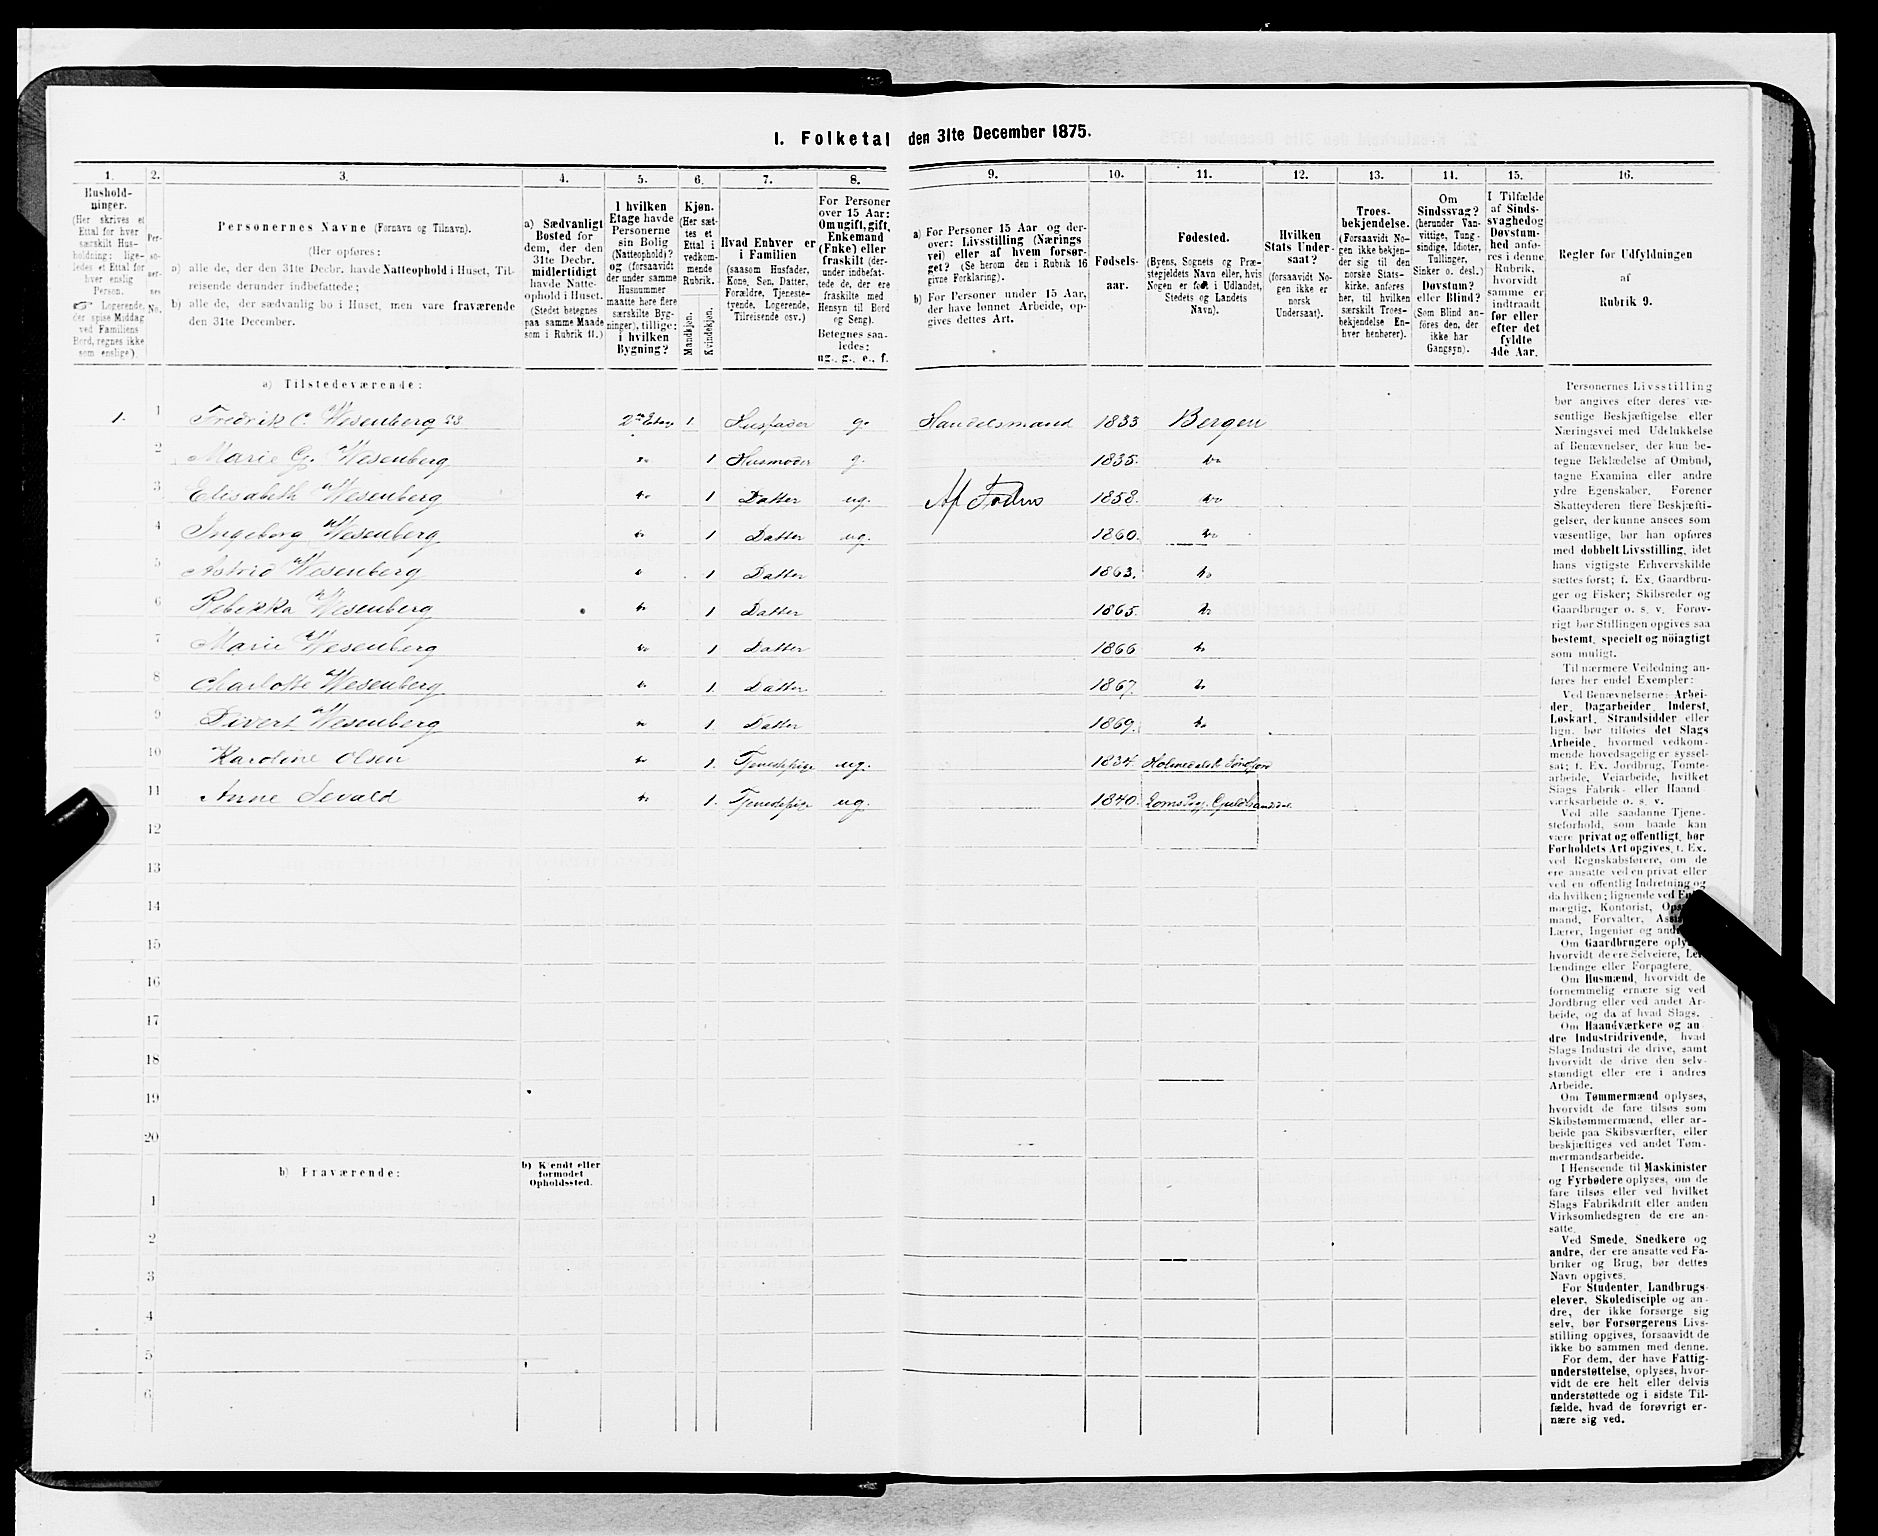 1. Folketal den 31te December 1875.
1. 2. 3. 4. 5. 6. 7. 8. 9. 10. 11. 12. 13. 14. 15. 16.
Hushold-
ninger.
(Her skrives et
Ettal for hver
særskilt Hus-
holdning; lige-
ledes et Ettal for
hver enslig
Person.
☞ Logerende,
der spise Middag
ved Familiens
Bord, regnes ikke
som enslige).
Per-
so-
ner-
nes
No.
Personernes Navne (Fornavn og Tilnavn).
(Her opføres:
a) alle de, der den 31te Decbr. havde Natteophold i Huset, Til-
reisende derunder indbefattede;
b) alle de, der sædvanlig bo i Huset, men vare fraværende
den 31te December.
a) Sædvanligt
Bosted for
dem, der den
31te Decbr.
midlertidigt
havde Natte-
ophold i Huset.
(Stedet betegnes
paa samme Maade
som i Rubrik 11.)
I hvilken
Etage havde
Personerne
sin Bolig
(Natteophold)?
og (forsaavidt
der under samme
Husnummer
maatte høre flere
særskilte Byg-
ninger), tillige:
i hvilken
Bygning?
Kjøn.
(Her sæt-
tes et
Ettal i
vedkom-
mende
Rubrik.
Mandkjøn.
Kvindekjøn.
Hvad Enhver er
i Familien
(saasom Husfader,
Kone, Søn, Datter,
Forældre, Tjeneste-
tyende, Logerende,
Tilreisende osv.)
For Personer
over 15 Aar:
Om ugift, gift,
Enkemand
(Enke) eller
fraskilt (der-
under indbefat-
tede de, der ere
fraskilte med
Hensyn til Bord
og Seng).
Betegnes saa-
ledes:
ug., g., e., f.
a) For Personer 15 Aar og der-
over: Livsstilling (Nærings
vei) eller af hvem forsør-
get? (Se herom den i Rubrik 16
givne Forklaring).
b) For Personer under 15 Aar,
der have lønnet Arbeide, op-
gives dettes Art.
Fødsels-
aar.
Fødested.
(Byens, Sognets og Præ-
stegjeldets Navn eller, hvis
Nogen er født i Udlandet,
Stedets og Landets
Navn).
Hvilken
Stats Under-
saat?
(forsaavidt No-
gen ikke er
norsk
Undersaat).
Troes-
bekjendelse.
(Forsaavidt No-
gen ikke bekjen-
der sig til den
norske Stats-
kirke, anføres
her, til hvilken
særskilt Troes-
bekjendelse En-
hver henhører).
Om
Sindssvag?
(herunder Van-
vittige, Tung-
sindige, Idioter,
Tullinger,
Sinker o. desl.)
Døvstum?
eller Blind?
(Som Blind an-
føres den, der
ikke har
Gangsyn).
I Tilfælde
af Sinds-
svaghed og
Døvstum-
hed anfø-
res i denne
Rubrik,
hvorvidt
samme er
indtraadt
før eller
efter det
fyldte
4de Aar.
Regler for Udfyldningen
af
Rubrik 9.
a) Tilstedeværende:
1. 1 Fredrik C. Wesenberg 2 Etage 1 Husfader g. Handelsmand 1833 Bergen
2 Marie G. Wesenberg do 1 Husmoder g. 1835. do
3 Elisabeth Wesenberg do 1 Datter ug. Af Faderen 1858. do
4 Ingeborg Wesenberg do 1 Datter ug. 1860. do
5 Astrid Wesenberg do 1 Datter 1863. do
6 Rebekka Wesenberg do 1 Datter 1865. do
7 Marie Wesenberg do 1 Datter 1866 do
8 Charlotte Wesenberg do 1. Datter 1867. do
9 Sivert Wesenberg do 1. Datter 1869. do
10 Karoline Olsen do 1. Tjenestepige ug. 1834. Holmedalst Søndfjord
11 Anne Sevald do 1. Tjenestepige ug. 1840.
12
13
14
15
16
17
18
19
20
b) Fraværende:
b) Kjendt eller
formodet
Opholdssted.
1
2
3
4
5
6
Personernes Livsstilling
bør angives efter deres væ-
sentlige Beskjæftigelse eller
Næringsvei med Udelukkelse
af Benævnelser, der kun be-
tegne Beklædelse af Ombud,
tagne Examina eller andre
ydre Egenskaber. Forener
Skatteyderen flere Beskjæfti-
gelser, der kunne ansees som
væsentlige, bør han opføres
med dobbelt Livsstilling, idet
hans vigtigste Erhvervskilde
sættes først; f. Ex. Gaardbru-
ger og Fisker; Skibsreder og
Gaardbruger o. s. v. Forøv-
rigt bør Stillingen opgives saa
bestemt, specielt og nöiagtigt
som muligt.
Til nærmere Veiledning an-
føres her endel Exempler:
Ved Benævnelserne: Arbei-
der, Dagarbeider, Inderst,
Løskarl, Strandsidder eller
lign. bør tilføies det Slags
Arbeide, hvormed vedkom-
mende hovedsagelig er syssel-
sat; f. Ex. Jordbrug, Tomte-
arbeide, Veiarbeide, hvilket
Slags Fabrik- eller Haand-
værksarbeide o. s. v.
Ved alle saadanne Tjene-
steforhold, som baade kan
være privat og offentligt, bør
Forholdets Art opgives, f. Ex.
ved Regnskabsførere, om de
ere ansatte ved en privat eller
ved en offentlig Indretning og
da hvilken; lignende ved
mægtig, Kontorist,
mand, Forvalter,
Lærer, Ingeniør og
Om Gaardbrugere
hvorvidt de ere Selveiere,
lændinge eller Forpagtere.
Om Husmænd, hvorvidt de
fornemmelig ernære sig ved
Jordbrug eller ved andet Ar-
beide, og da af hvad Slags.
Om Haandværkere og an-
dre Industridrivende, hvad
Slags Industri de drive, samt
hvorvidt de drive den selv-
stændigt eller ere i andres
Arbeide.
Om Tømmermænd oplyses,
hvorvidt de fare tilsøs som
Skibstømmermænd, eller ar-
beide paa Skibsværfter, eller
beskjæftiges ved andet Tøm-
mermandsarbeide.
I Henseende til Maskinister
og Fyrbødere oplyses, om de
fare tilsøs eller ved hvilket
Slags Fabrikdrift eller anden
Virksomhedsgren de ere an-
satte.
Ved Smede, Snedkere og
andre, der ere ansatte ved Fa-
briker og Brug, bør dettes
Navn opgives.
For Studenter, Landbrugs-
elever, Skoledisciple og an-
dre, der ikke forsørge sig
selv, bør Forsørgerens Livs-
stilling opgives, forsaavidt de
ikke bo sammen med denne.
For dem, der have Fattig-
understøttelse, oplyses, hvor-
vidt de ere helt eller delvis
understøttede og i sidste Til-
fælde, hvad de forøvrigt er-
nære sig ved.